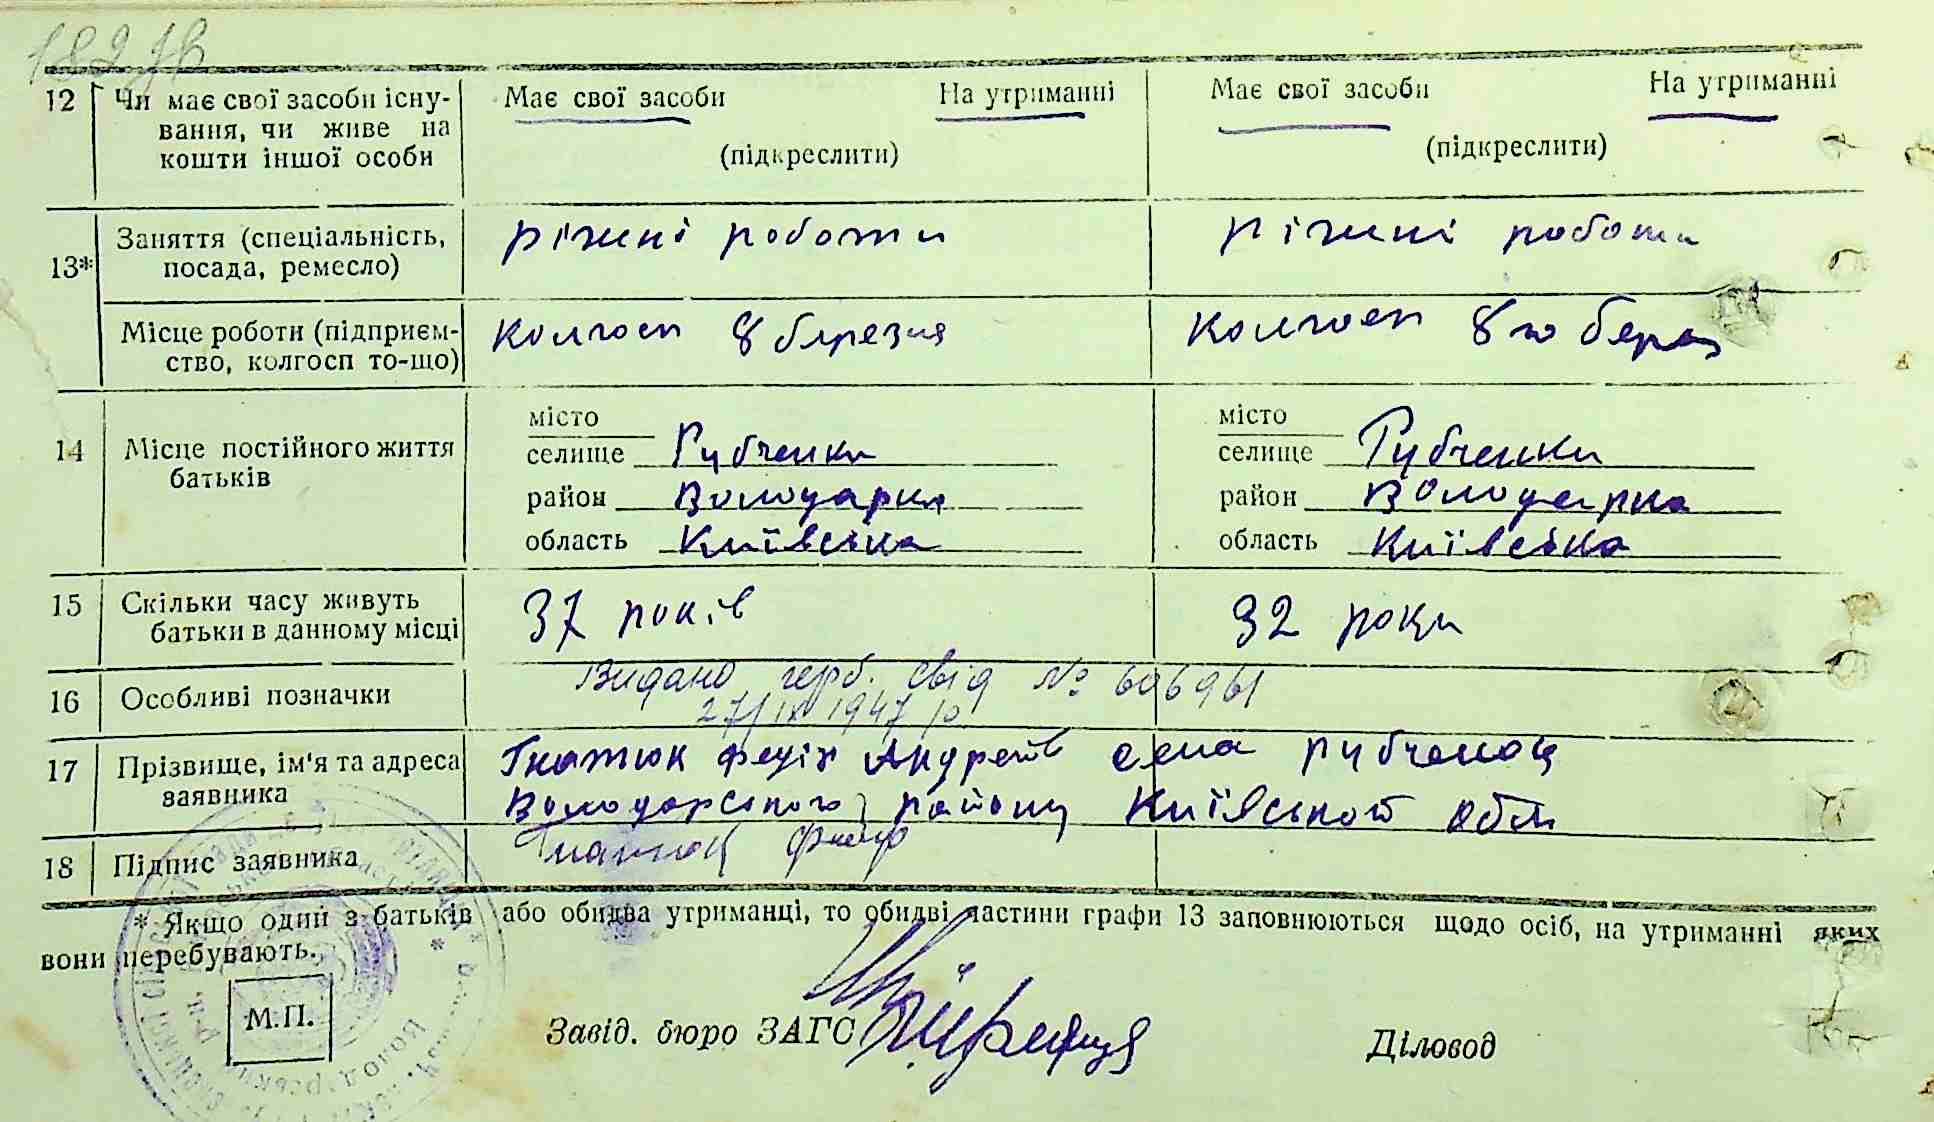 12 Чи має свої засоби існу-
вання, чи живе на
кошти іншої особи
Має свої засоби На утриманні
(підкреслити)
Має свої засоби На утриманні
(підкреслити)
13* Заняття (спеціальність,
посада, ремесло)
ріжні роботи
ріжні роботи
Місце роботи (підприєм-
ство, колгосп то-що)
Колгосп 8 березня
Колгосп 8го берез
14 Місце постійного життя
батьків
місто
селище Рубченки
район Володарка
область Київська
місто
селище Рубченки
район Володарка
область Київська
15 Скільки часу живуть
батьки в данному місці
37 років
32 роки
16 Особливі позначки
Видано герб. свід № 606961
27/IX 1947 р
17 Прізвище, ім'я та адреса
заявника
Гнатюк Федір Андреїв села Рубченки
Володарського району Київської обл
18 Підпис заявника
Гнатюк
* Якщо один з батьків або обидва утриманці, то обидві частини графи 13 заповнюються щодо осіб, на утриманні яких
вони перебувають.
М.П.
Завід. бюро ЗАГС
Діловод